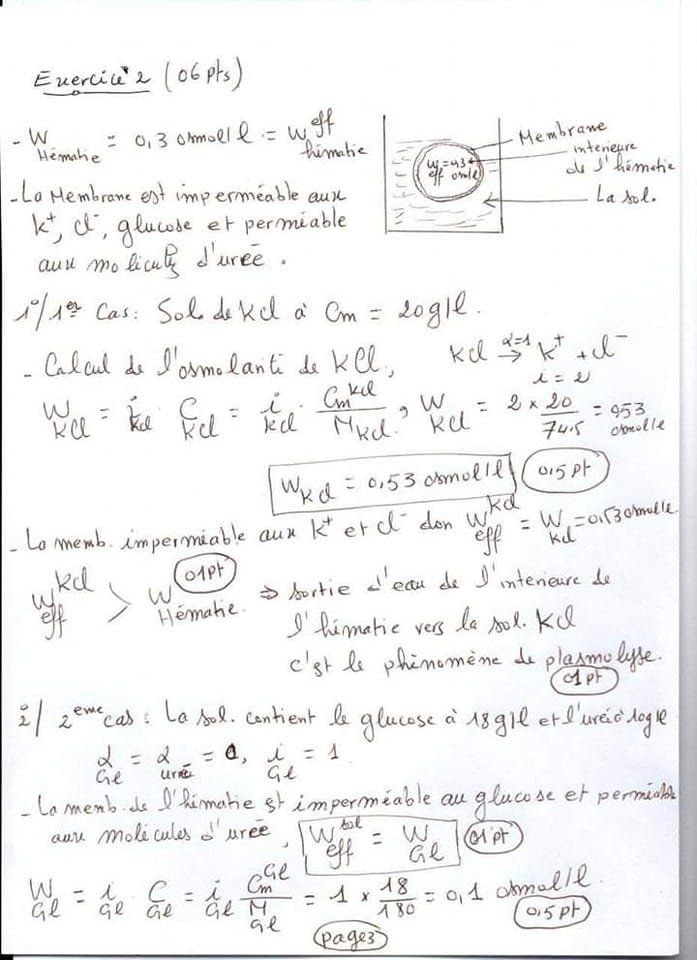 Exercice 2 (06 pts)
- W Hématie = 0,3 osmol/l = W eff hématie
Membrane
interieure de l'hématie
La sol.
W = 0,3
eff osm/l
- La Membrane est imperméable aux
K⁺, Cl⁻, glucose et perméable
aux molécules d'urée.
1°/ 1er Cas: Sol. de KCl à Cm = 20g/l.
- Calcul de l'osmolarité de KCl, KCl α=1 → K⁺ + Cl⁻
i = 2
W KCl = i KCl . C KCl = i KCl . Cm KCl / M KCl , W KCl = 2 × 20 / 74.5 = 0,53 osmol/l
W KCl = 0,53 osmol/l (0,5 pt)
- La memb. imperméable aux K⁺ et Cl⁻ don W eff KCl = W KCl = 0,53 osmol/l
W eff KCl > W Hématie. (01 pt) ⇒ sortie d'eau de l'interieure de
l'hématie vers la sol. KCl
c'est le phénomène de plasmolyse.
(01 pt)
2°/ 2eme cas : La sol. contient le glucose à 18 g/l et l'urée à 10 g/l
α Gl = α urée = 0, i Gl = 1
- La memb. de l'hématie est imperméable au glucose et perméable
aux molécules d'urée, W eff sol = W Gl (01 pt)
W Gl = i Gl C Gl = i Gl Cm Gl / M Gl = 1 × 18 / 180 = 0,1 osmol/l.
(0,5 pt)
page 3